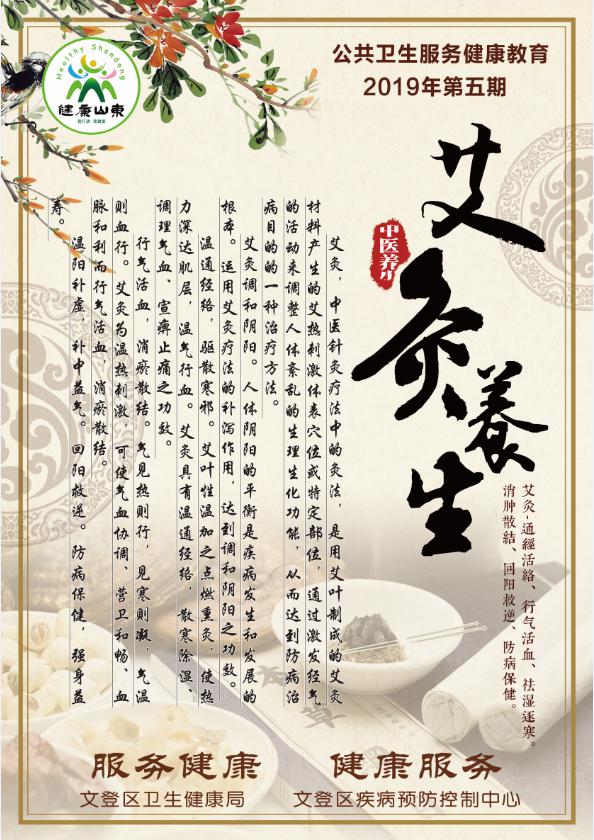 Healthy Shandong
健康山东
我行动 我健康
公共卫生服务健康教育
2019年第五期
艾灸養生
中医养生
艾灸-通經活絡、行气活血、祛湿逐寒。
消肿散结、回阳救逆、防病保健。
艾灸,中医针灸疗法中的灸法,是用艾叶制成的艾灸
材料产生的艾热刺激体表穴位或特定部位,通过激发经气
的活动来调整人体紊乱的生理生化功能,从而达到防病治
病目的的一种治疗方法。
艾灸调和阴阳。人体阴阳的平衡是疾病发生和发展的
根本。运用艾灸疗法的补泻作用,达到调和阴阳之功效。
温通经络,驱散寒邪。艾叶性温加之点燃熏灸,使热
力深达肌层,温气行血。艾灸具有温通经络,散寒除湿、
调理气血、宣痹止痛之功效。
行气活血,消瘀散结。气见热则行,见寒则凝,气温
则血行。艾灸为温热刺激,可使气血协调、营卫和畅、血
脉和利而行气活血,消瘀散结。
温阳补虚,补中益气。回阳救逆。防病保健,强身益
寿。
服务健康 健康服务
文登区卫生健康局 文登区疾病预防控制中心